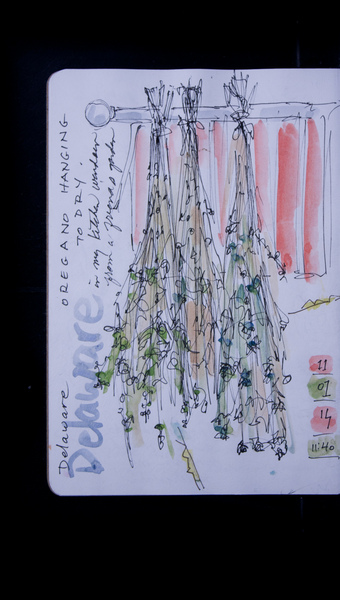 OREGANO HANGING
TO DRY.
in my kitchen window
from a friend's garden
Delaware
Delaware
11
07
14
11:40